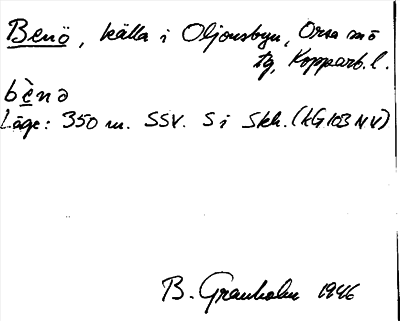 Benö, källa i Oljonsbyn, Orsa sn o
tg, Kopparb. l.
bènə
Läge: 350 m. SSV. S i Skh. (KG 103 NV)
B. Granholm 1946